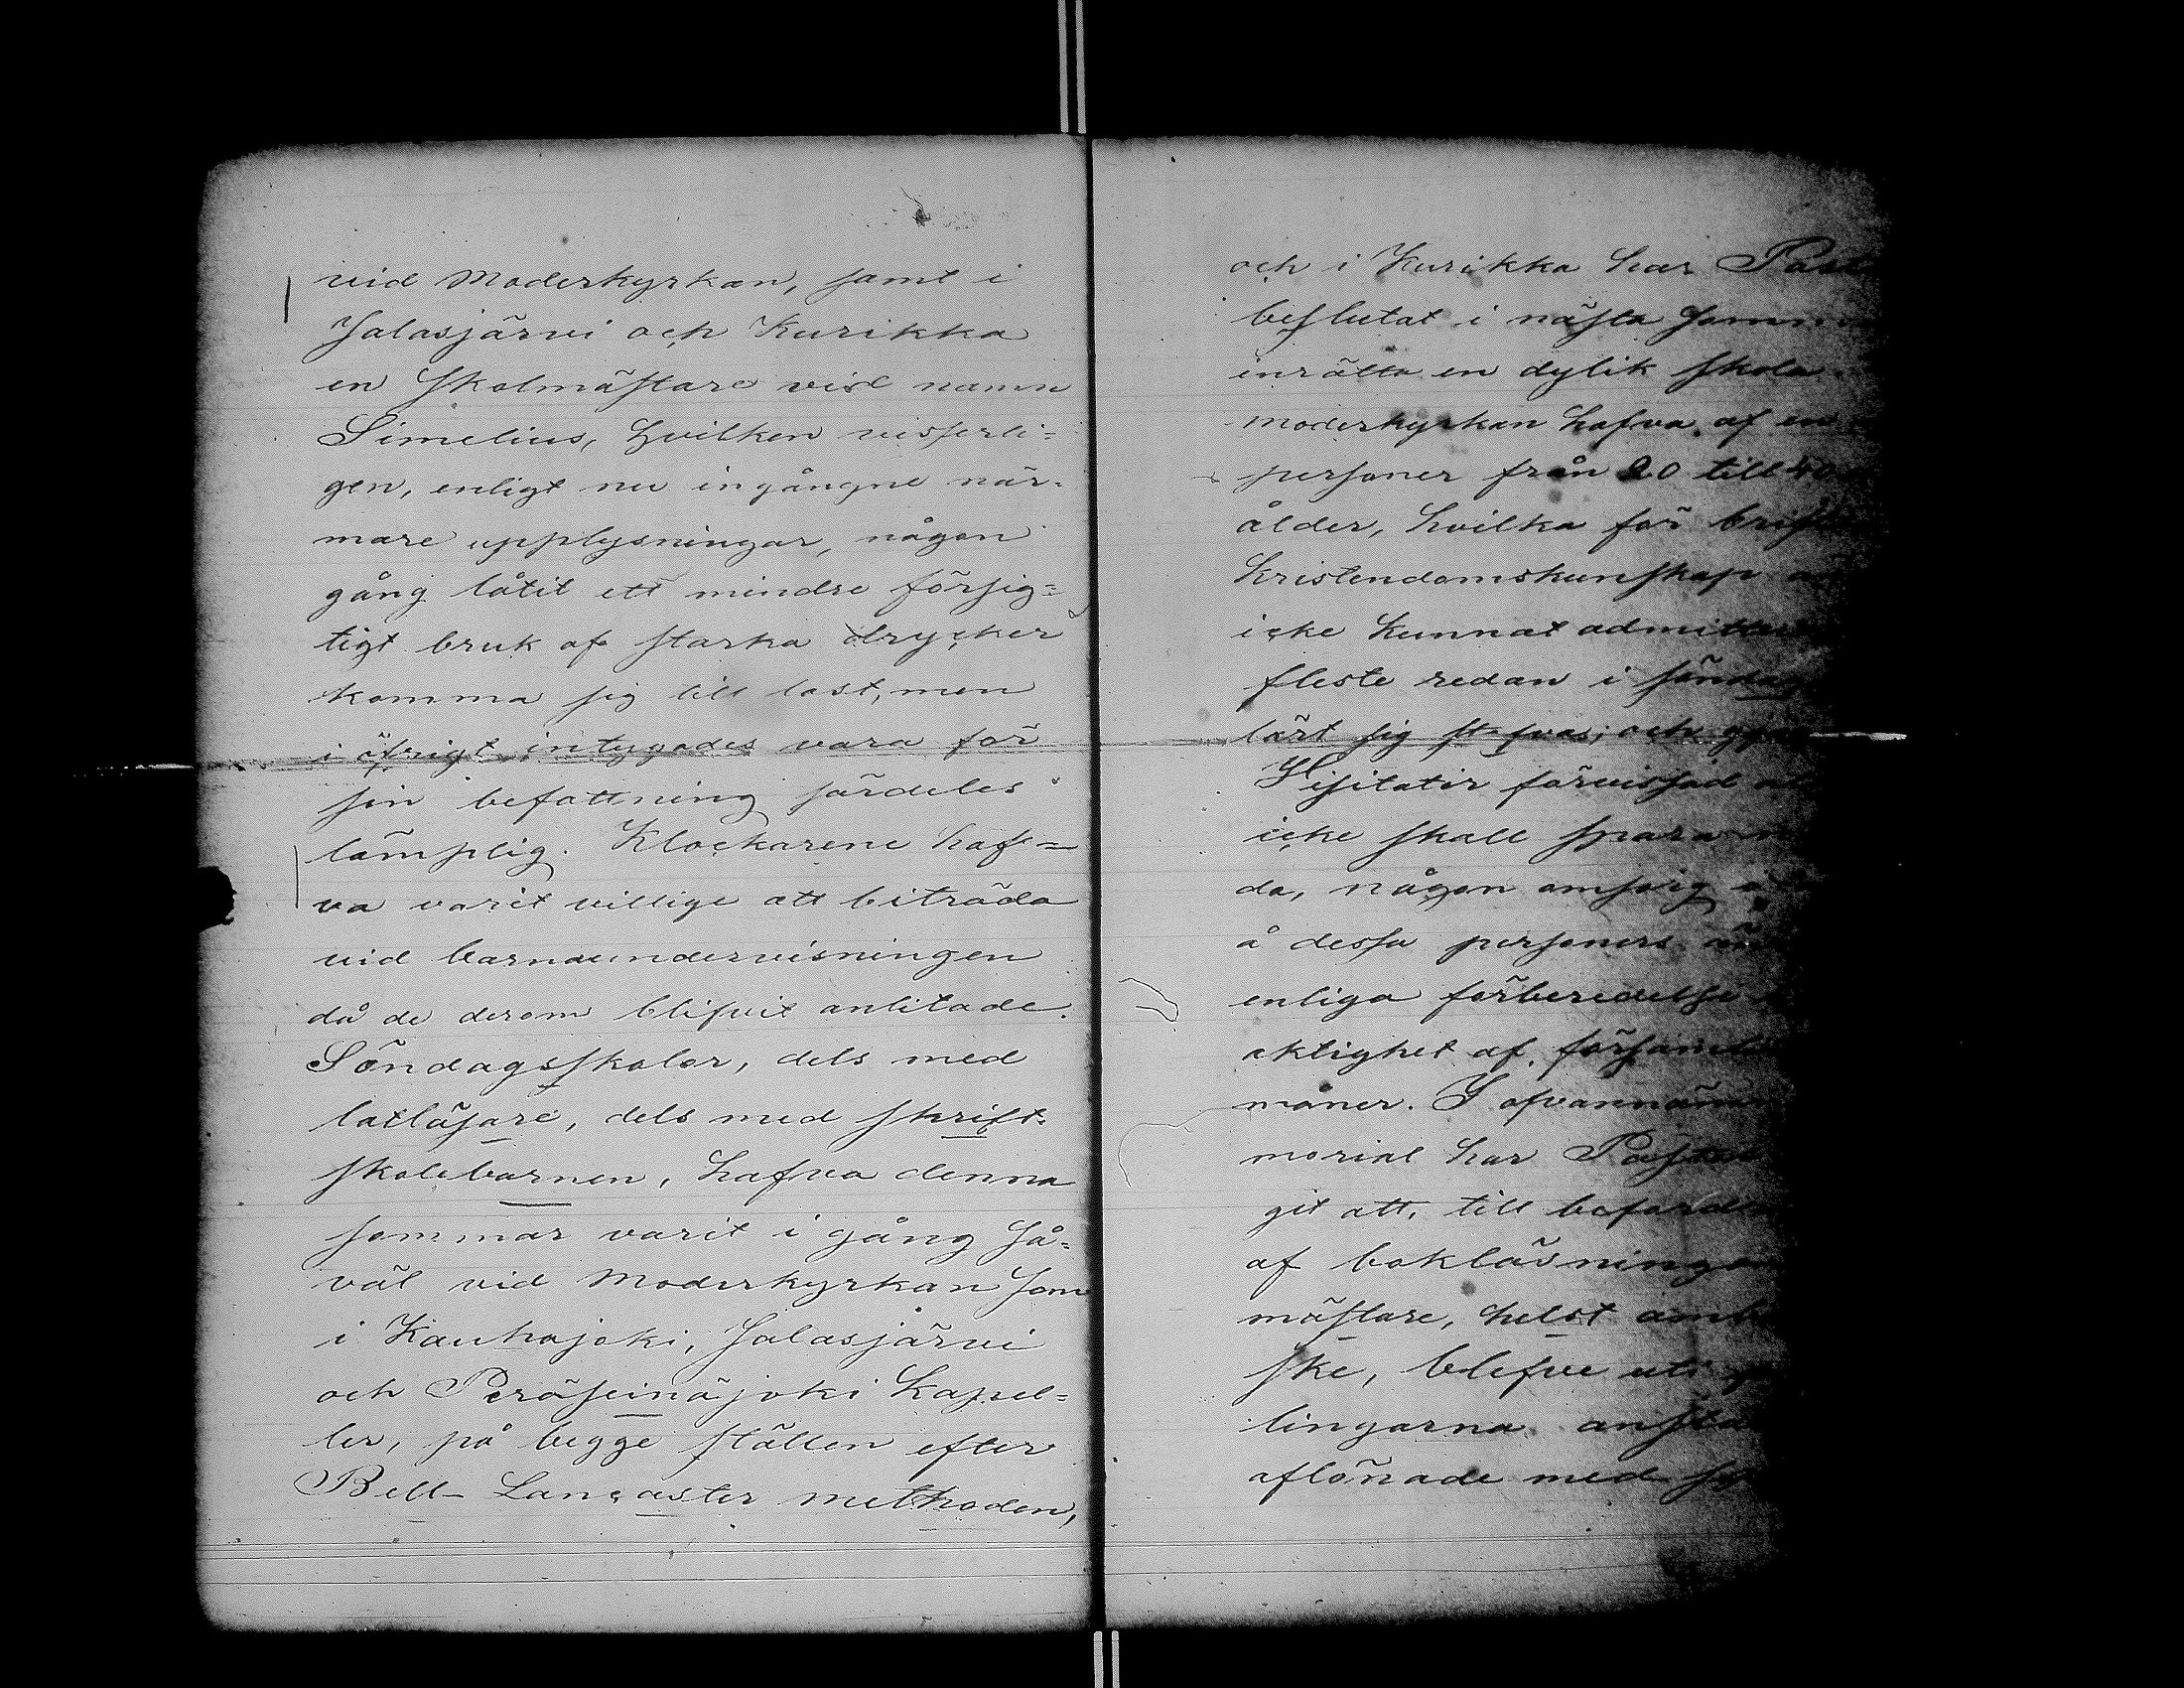 vid Moderkyrkan, samt i
Jalasjärvi och Kurikka
en Skolmästare vid namn
Simelius, hvilken visserli=
gen, enligt nu ingångne när=
mare upplysningar, någon
gång låtit ett mindre försig=
tigt bruk af starka drycker
komma sig till last, men
i öfrigt intygades vara för
sin befattning särdeles
lämplig. Klockarene haf=
va varit villige att biträda
vid barnaundervisningen
då de derom blifvit anlitade.
Söndagsskolor, dels med
latläsare, dels med skrift=
skolebarnen, hafva denna
sommar varit i gång så=
väl vid Moderkyrkan som
i Kauhajoki, Jalasjärvi
och Peräseinäjoki kapel=
ler, på begge ställen efter
Bell-Lancaster methoden,
och i Kurikka har Past
beslutat i nästa Somm
inrätta en dylik skola.
moderkyrkan hafva af en
personer från 20 till 40
ålder, hvilka för brist
kristendomskunskap
icke kunnat admitte
fleste redan i söndag
lärt sig stafvas; och
Visitator förvissad
icke skall spara
da, någon omsorg
å dessa personers än
enliga förberedelse
aktighet af församlin
moner. I ofvannämn
morial har Pastor
git att, till beford
af bokläsningen
mästare, helst amb
ske, blefve uti
lingarna anstä
aflönade med